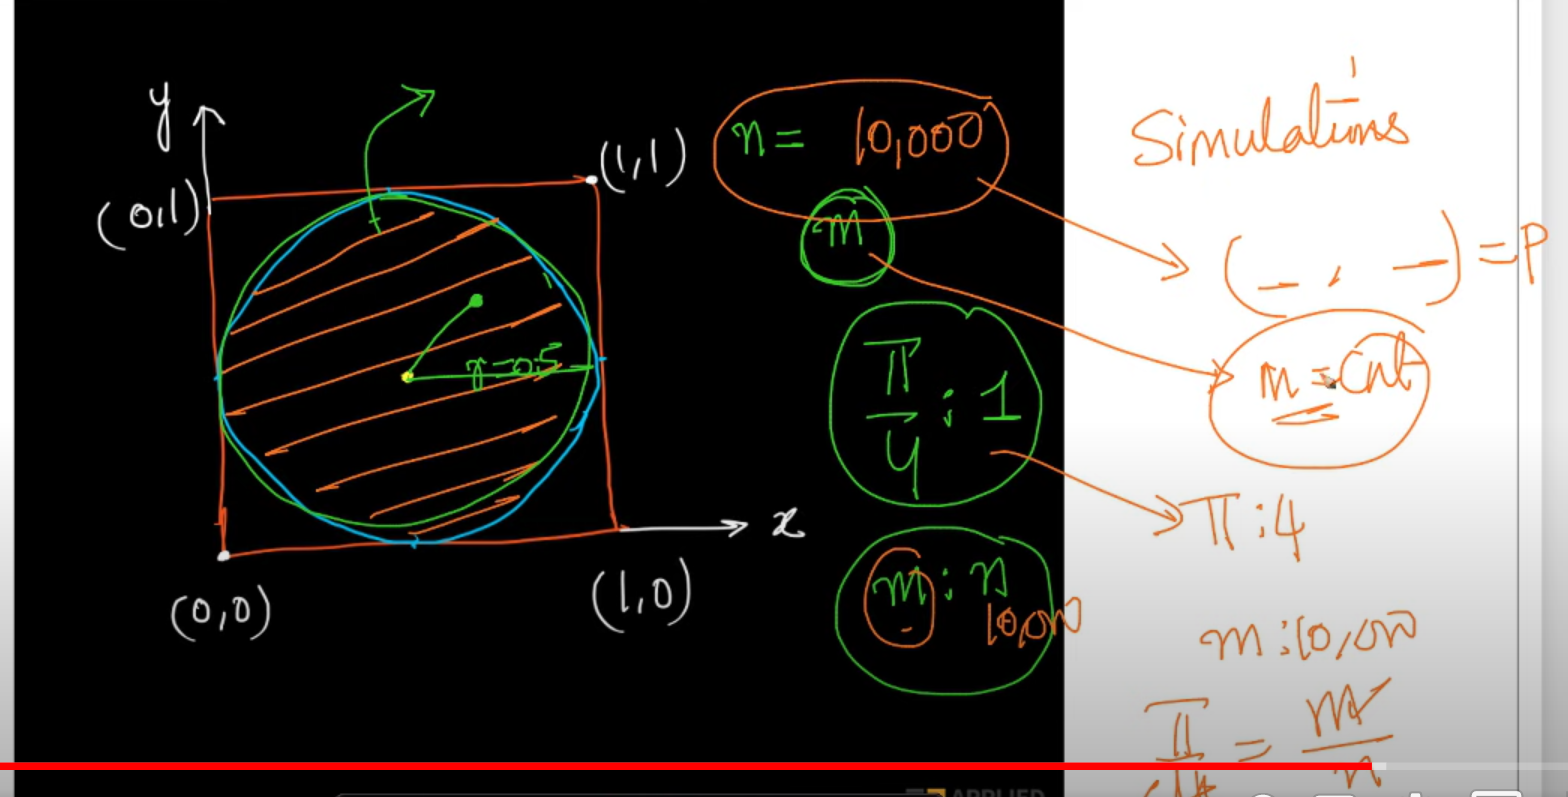 y
(0,1)
(1,1)
r=0.5
x
(0,0)
(1,0)
n= 10,000
m
π/4 : 1
m : n
10,000
Simulations
( _ , _ ) = P
m = cnt
π : 4
m : 10,000
π/4 = m/n
APPLIED